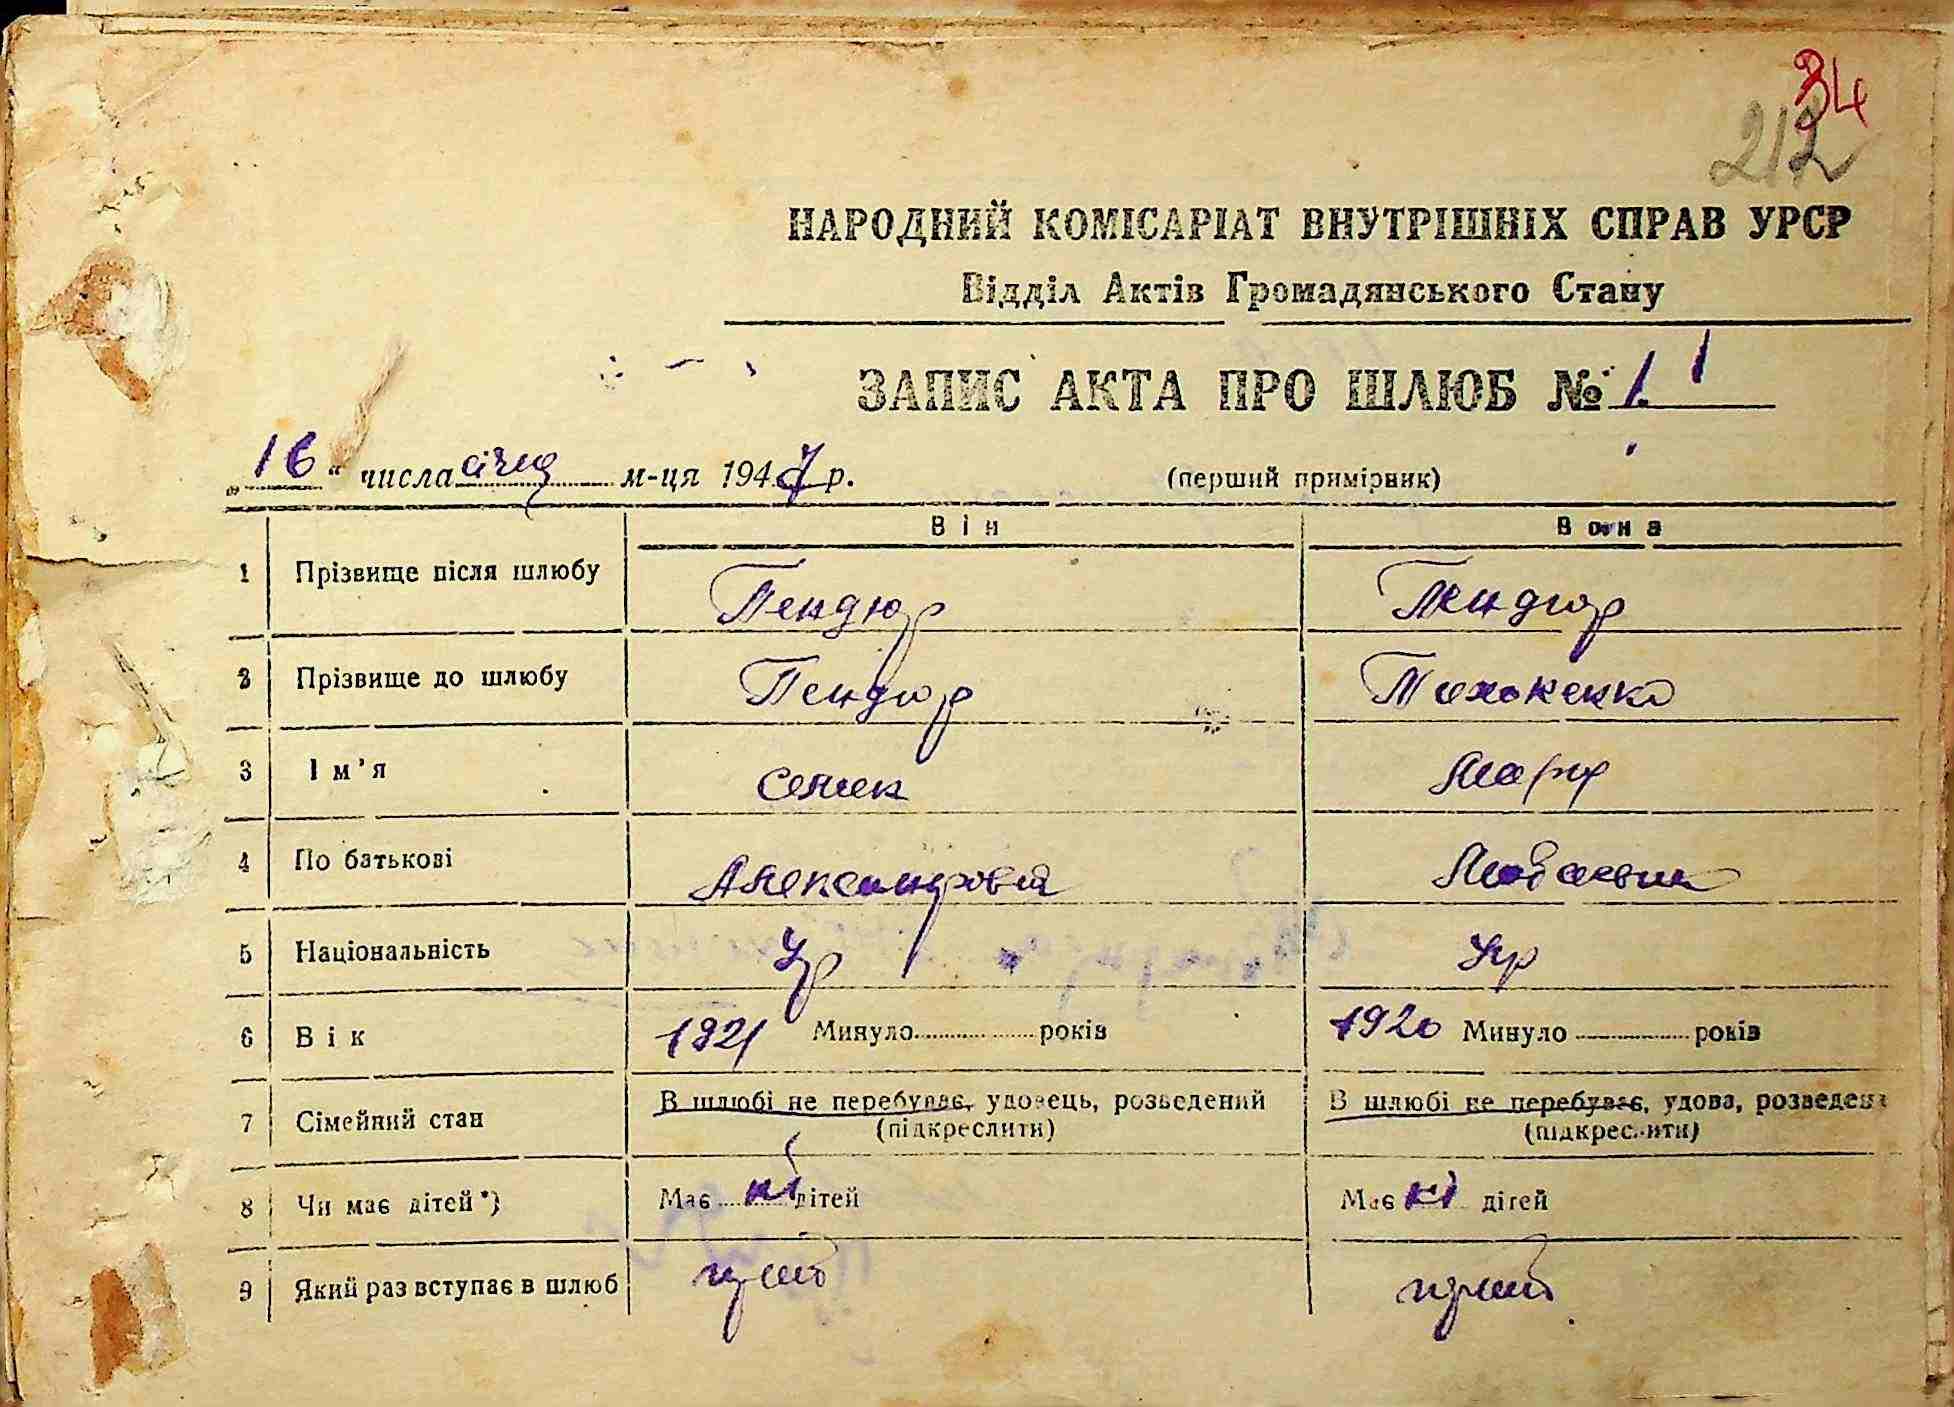 34
212
НАРОДНИЙ КОМІСАРІАТ ВНУТРІШНІХ СПРАВ УРСР
Відділ Актів Громадянського Стану
ЗАПИС АКТА ПРО ШЛЮБ № 1
„ 16 “ числа січня м-ця 1947 р. (перший примірник)
Він Вона
1 Прізвище після шлюбу Пендюр Пендюр
2 Прізвище до шлюбу Пендюр
3 Ім'я Семен
4 По батькові Александрович
5 Національність Укр Укр
6 Вік 1921 Минуло ........ років 1920 Минуло ........ років
7 Сімейний стан В шлюбі не перебуває, удовець, розведений В шлюбі не перебуває, удова, розведена
(підкреслити) (підкреслити)
8 Чи має дітей*) Має ні дітей Має ні дітей
9 Який раз вступає в шлюб